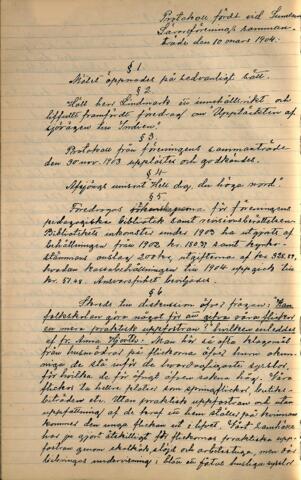 Protokoll fördt vid Sundsv.
Lärareförenings samman-
träde den 10 mars 1904.
§ 1.
Mötet öppnades på sedvanligt sätt.
§ 2.
Höll herr Lindmark ett innehållsrikt och
liffullt framfördt föredrag om "Upptäckten af
sjövägen till Indien".
§ 3.
Protokoll från föreningens sammanträde
den 30 nov. 1903 upplästes och godkändes.
§ 4.
Afsjöngs unisont "Hell dig, du höga nord".
§ 5
Föredrogs räkenskaperna för föreningens
pedagogiska bibliotek samt revisionsberättelsen.
Bibliotekets inkomster under 1903 ha utgjorts af
behållningen från 1902 kr. samt kyrko-
stämmans anslag 200 kr, utgifterna af kr.
hvadan kassabehållningen till 1904 uppgick till
kr. 57.48. Ansvarsfrihet beviljades.
§ 6.
Skreds till diskussion öfver frågan: "Kan
folkskolan göra något för att gifva våra flickor
en mera praktisk uppfostran?" hvilken inleddes
af fr. Anna Hjorth. Man hör så ofta klagomål
från husmödrar på flickorna öfver huru okun-
niga de stå inför de hvardagligaste sysslor,
för hvilka de för öfrigt äfven sakna håg. Våra
flickor ta hellre platser som springflickor, butiks-
biträden etc. Utan praktisk uppfostran och utan
uppfattning af de kraf en hem ställer på kvinnan
kommer den unga flickan ut i lifvet. Vårt samhälle
har ju gjort åtskilligt för flickornas praktiska upp-
fostran genom skolkök, slöjd och arbetsstuga, men den
undervisning i husliga sysslor